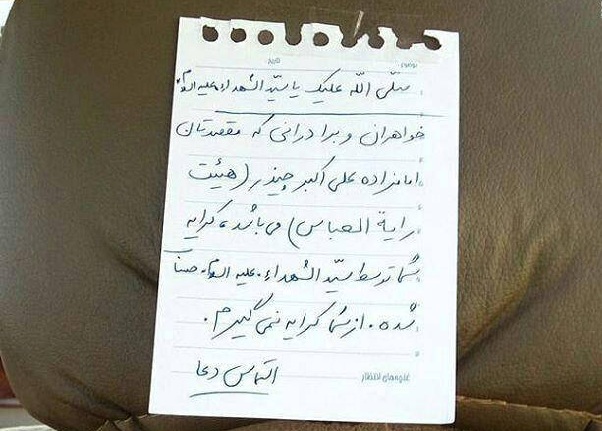 موضوع
تاریخ
صلّی اللّه علیک یا سیّد الشهداء علیه السلام
خواهران و برادرانی که مقصدتان
امامزاده علی اکبر چیذر (هیئت
رایة العباس) می باشد، کرایه
شما توسط سیّد الشهداء علیه السلام حساب
شده. از شما کرایه نمی گیرم.
التماس دعا